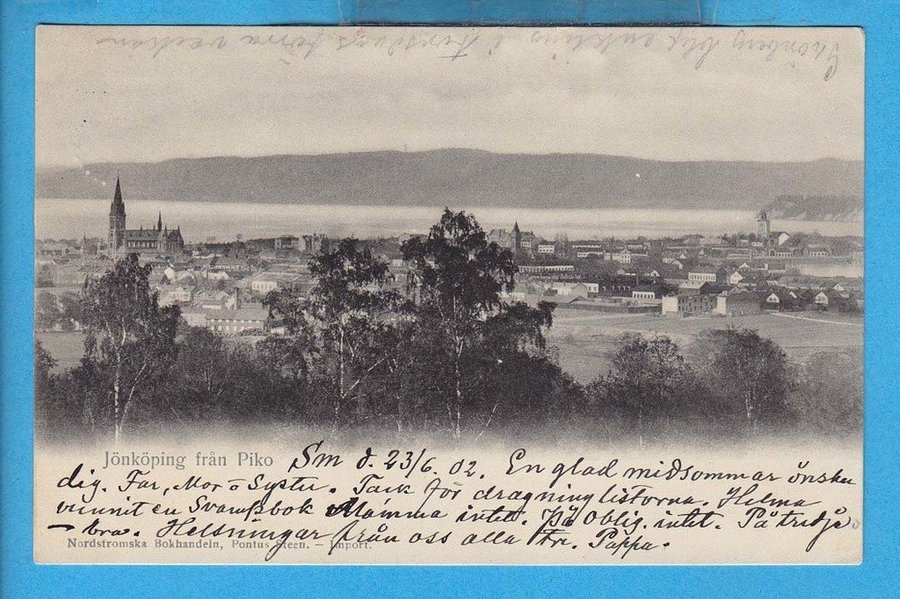 Jönköping från Piko
Sm d. 23/6. 02. En glad midsommar önskar
dig. Far, Mor o Syster. Tack för dragninglistorna. Helma
vunnit en Svanskbok Mamma intet. På Oblig. intet. På tredje
bra. Helsningar från oss alla Fr. Pappa.
Nordstromska Bokhandeln, Pontus Steen. — Import.